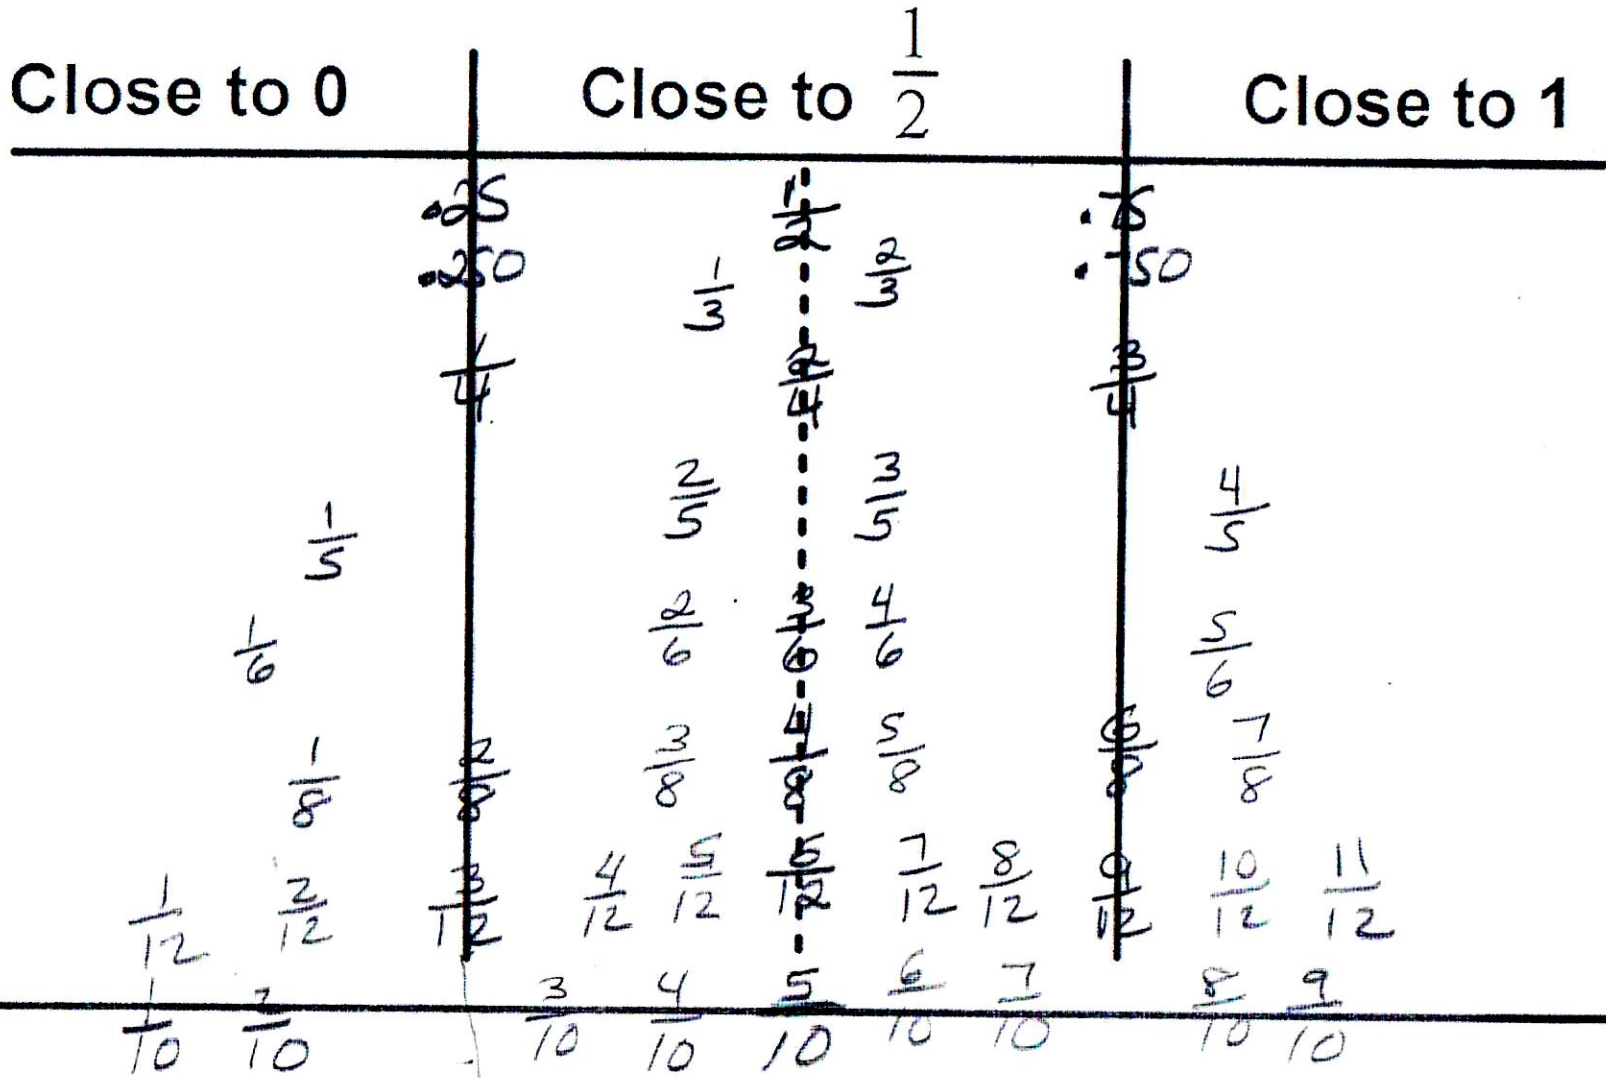 Close to 0 Close to 1/2 Close to 1
.25 1/2 .75
.250 1/3 2/3 .750
1/4 2/4 3/4
1/5 2/5 3/5 4/5
1/6 2/6 3/6 4/6 5/6
1/8 2/8 3/8 4/8 5/8 6/8 7/8
1/12 2/12 3/12 4/12 5/12 6/12 7/12 8/12 9/12 10/12 11/12
1/10 2/10 3/10 4/10 5/10 6/10 7/10 8/10 9/10